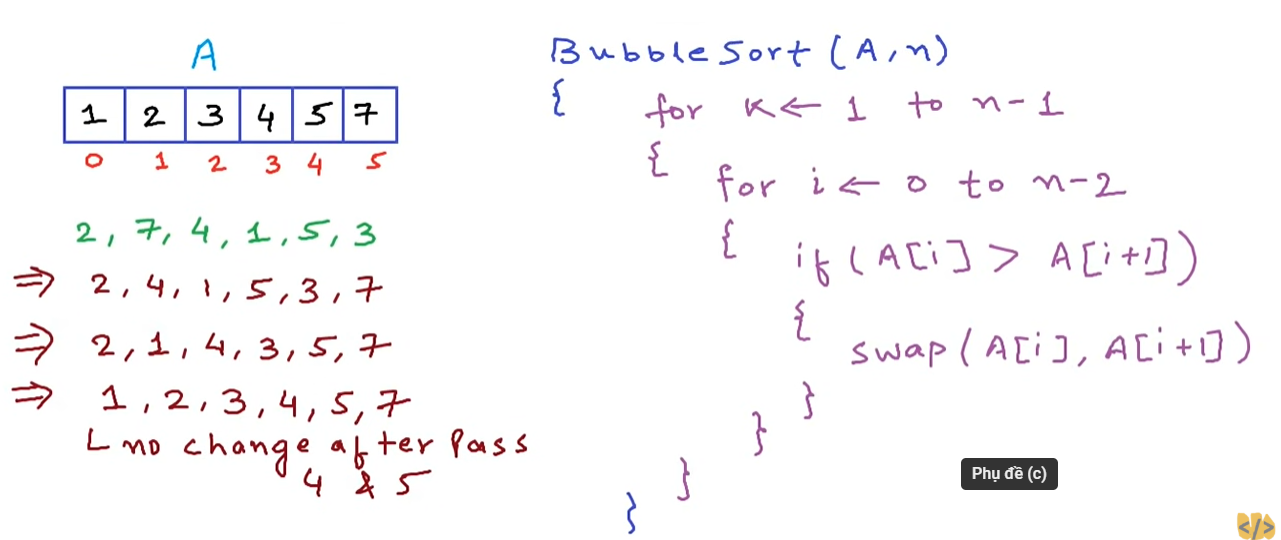 A
1 2 3 4 5 7
0 1 2 3 4 5
2, 7, 4, 1, 5, 3
⇒ 2, 4, 1, 5, 3, 7
⇒ 2, 1, 4, 3, 5, 7
⇒ 1, 2, 3, 4, 5, 7
└ no change after Pass
4 & 5
BubbleSort (A, n)
{ for K ← 1 to n-1
{
for i ← 0 to n-2
{ if (A[i] > A[i+1])
{
swap (A[i], A[i+1])
}
}
}
}
Phụ đề (c)
</>